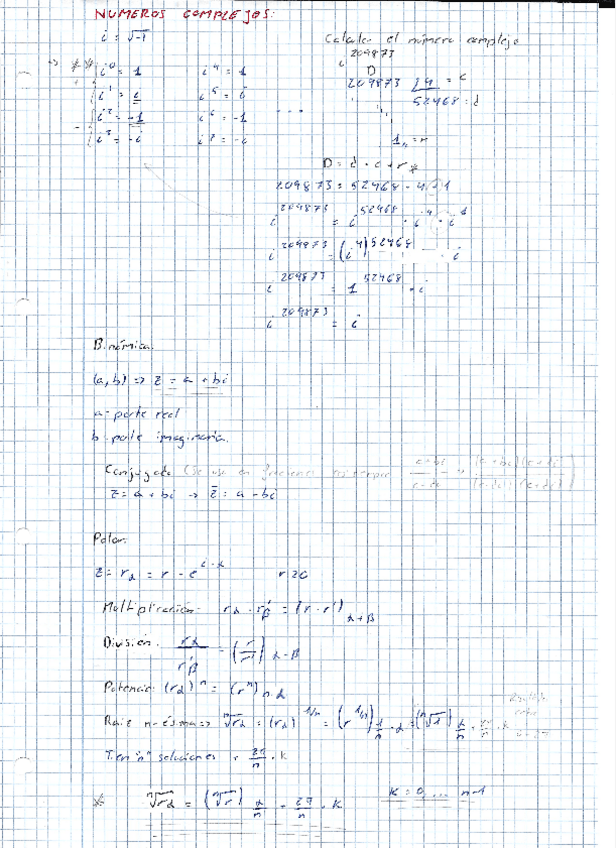 NUMEROS COMPLEJOS:
i = √-1
i⁰ = 1   i⁴ = 1
i¹ = i   i⁵ = i
i² = -1   i⁶ = -1   ...
i³ = -i   i⁷ = -i
Calcular el número complejo
i²⁰⁹⁸⁷³
D
209873 |4 = c
52468 = d
1 = r
D = d · c + r
209873 = 52468 · 4 + 1
i²⁰⁹⁸⁷³ = i⁵²⁴⁶⁸ · i⁴ · i¹
i²⁰⁹⁸⁷³ = (i⁴)⁵²⁴⁶⁸ · i
i²⁰⁹⁸⁷³ = 1⁵²⁴⁶⁸ · i
i²⁰⁹⁸⁷³ = i
Binómica:
(a, b) => z = a + bi
a = parte real
b = parte imaginaria.
Conjugado (Se usa en fracciones
z = a + bi → z̄ = a - bi
Polar:
r ≥ 0
Multiplicación: r_α · r'_β = (r · r')_α+β
División: r_α / r'_β = (r/r')_α-β
Potencia: (r_α)ⁿ = (rⁿ)_n·α
Raiz n-ésima =>
Tien "n" soluciones + 2π/n · K
* ⁿ√r_α = (ⁿ√r)_α/n + 2π/n · K   K = 0, ... n-1